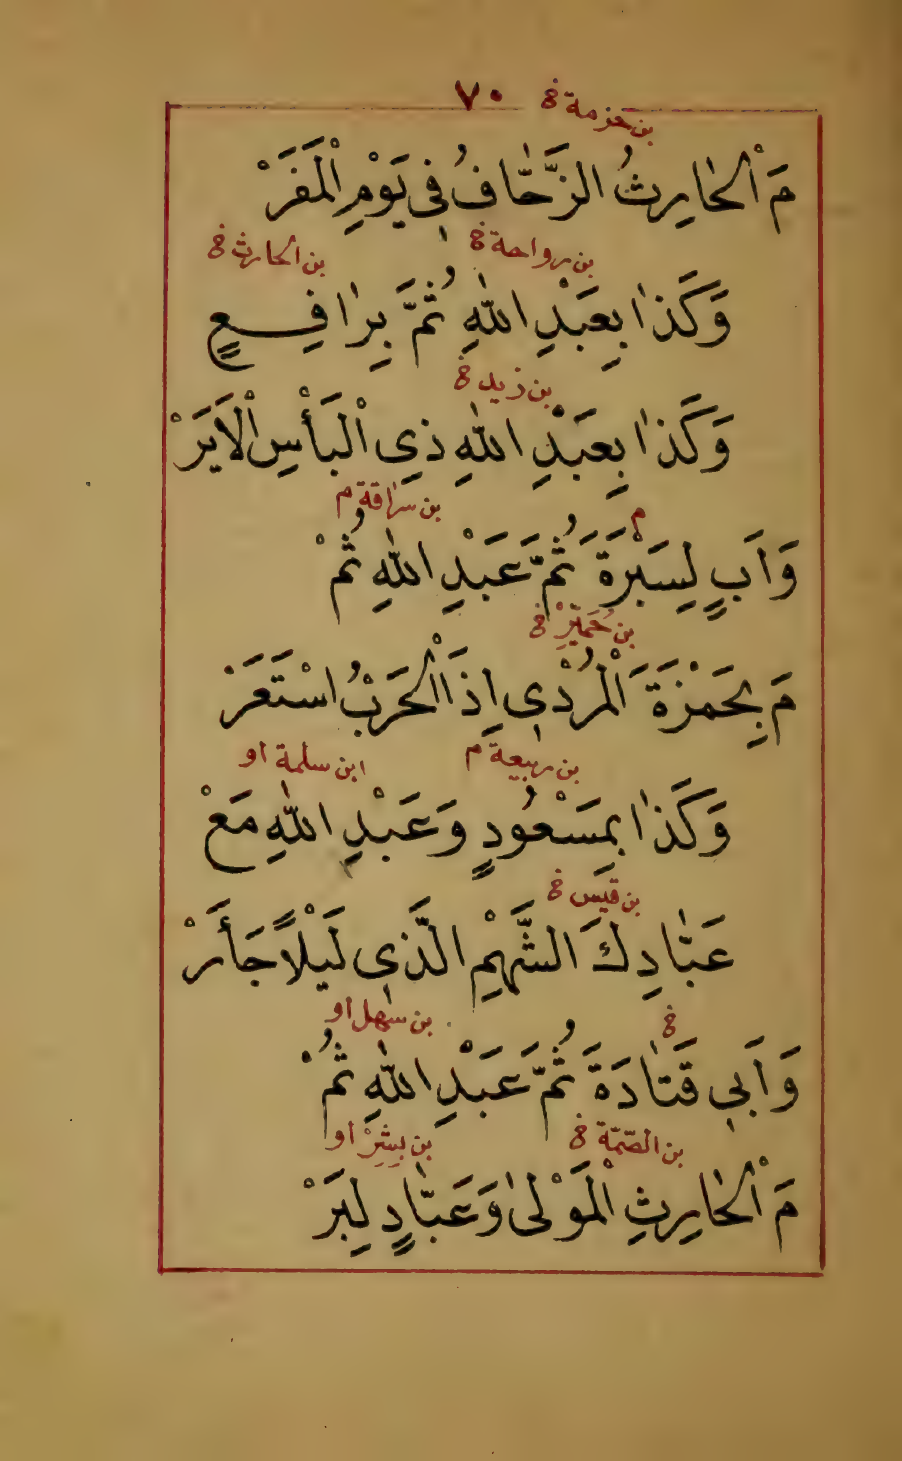 ٧٠
بن خزمة خ
مَ الْحٰارِثُ الزَّحّٰافُ فِي يَوْمِ الْمَفَرْ
بن رواحة خ بن الحارث خ
وَكَذٰا بِعَبْدِ اللهِ ثُمَّ بِرٰافِعٍ
بن زيد خ
وَكَذٰا بِعَبْدِ اللهِ ذِي الْبَأْسِ الْاَيَرْ
م بن سراقة م
وَاَبٍ لِسَبْرَةَ ثُمَّ عَبْدِ اللهِ ثُمْ
بن حُمَيِّرْ خ
مَ بِحَمْزَةَ الْمُرْدِي اِذَا الْحَرْبُ اسْتَعَرْ
بن ربيعة م ابن سلمة او
وَكَذٰا بِمَسْعُودٍ وَعَبْدِ اللهِ مَعْ
بن قيس خ
عَبّٰادِكَ الشَّهْمِ الَّذِي لَيْلاً جَأَرْ
خ بن سهل او
وَاَبِي قَتٰادَةَ ثُمَّ عَبْدِ اللهِ ثُمْ
بن الصّمّة خ بن بِشِرْ او
مَ الْحٰارِثِ الْمَوْلىٰ وَعَبّٰادٍ لِبَرْ